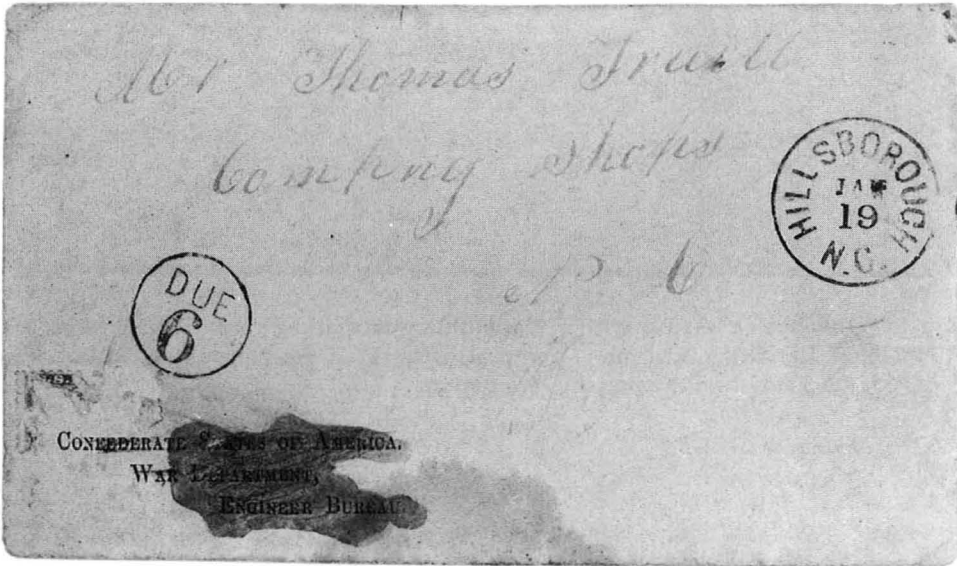 Mr Thomas
Company Shops
N C
HILLSBOROUGH
19
N.C.
DUE
6
CONFEDERATE STATES OF AMERICA.
WAR DEPARTMENT,
ENGINEER BUREAU.